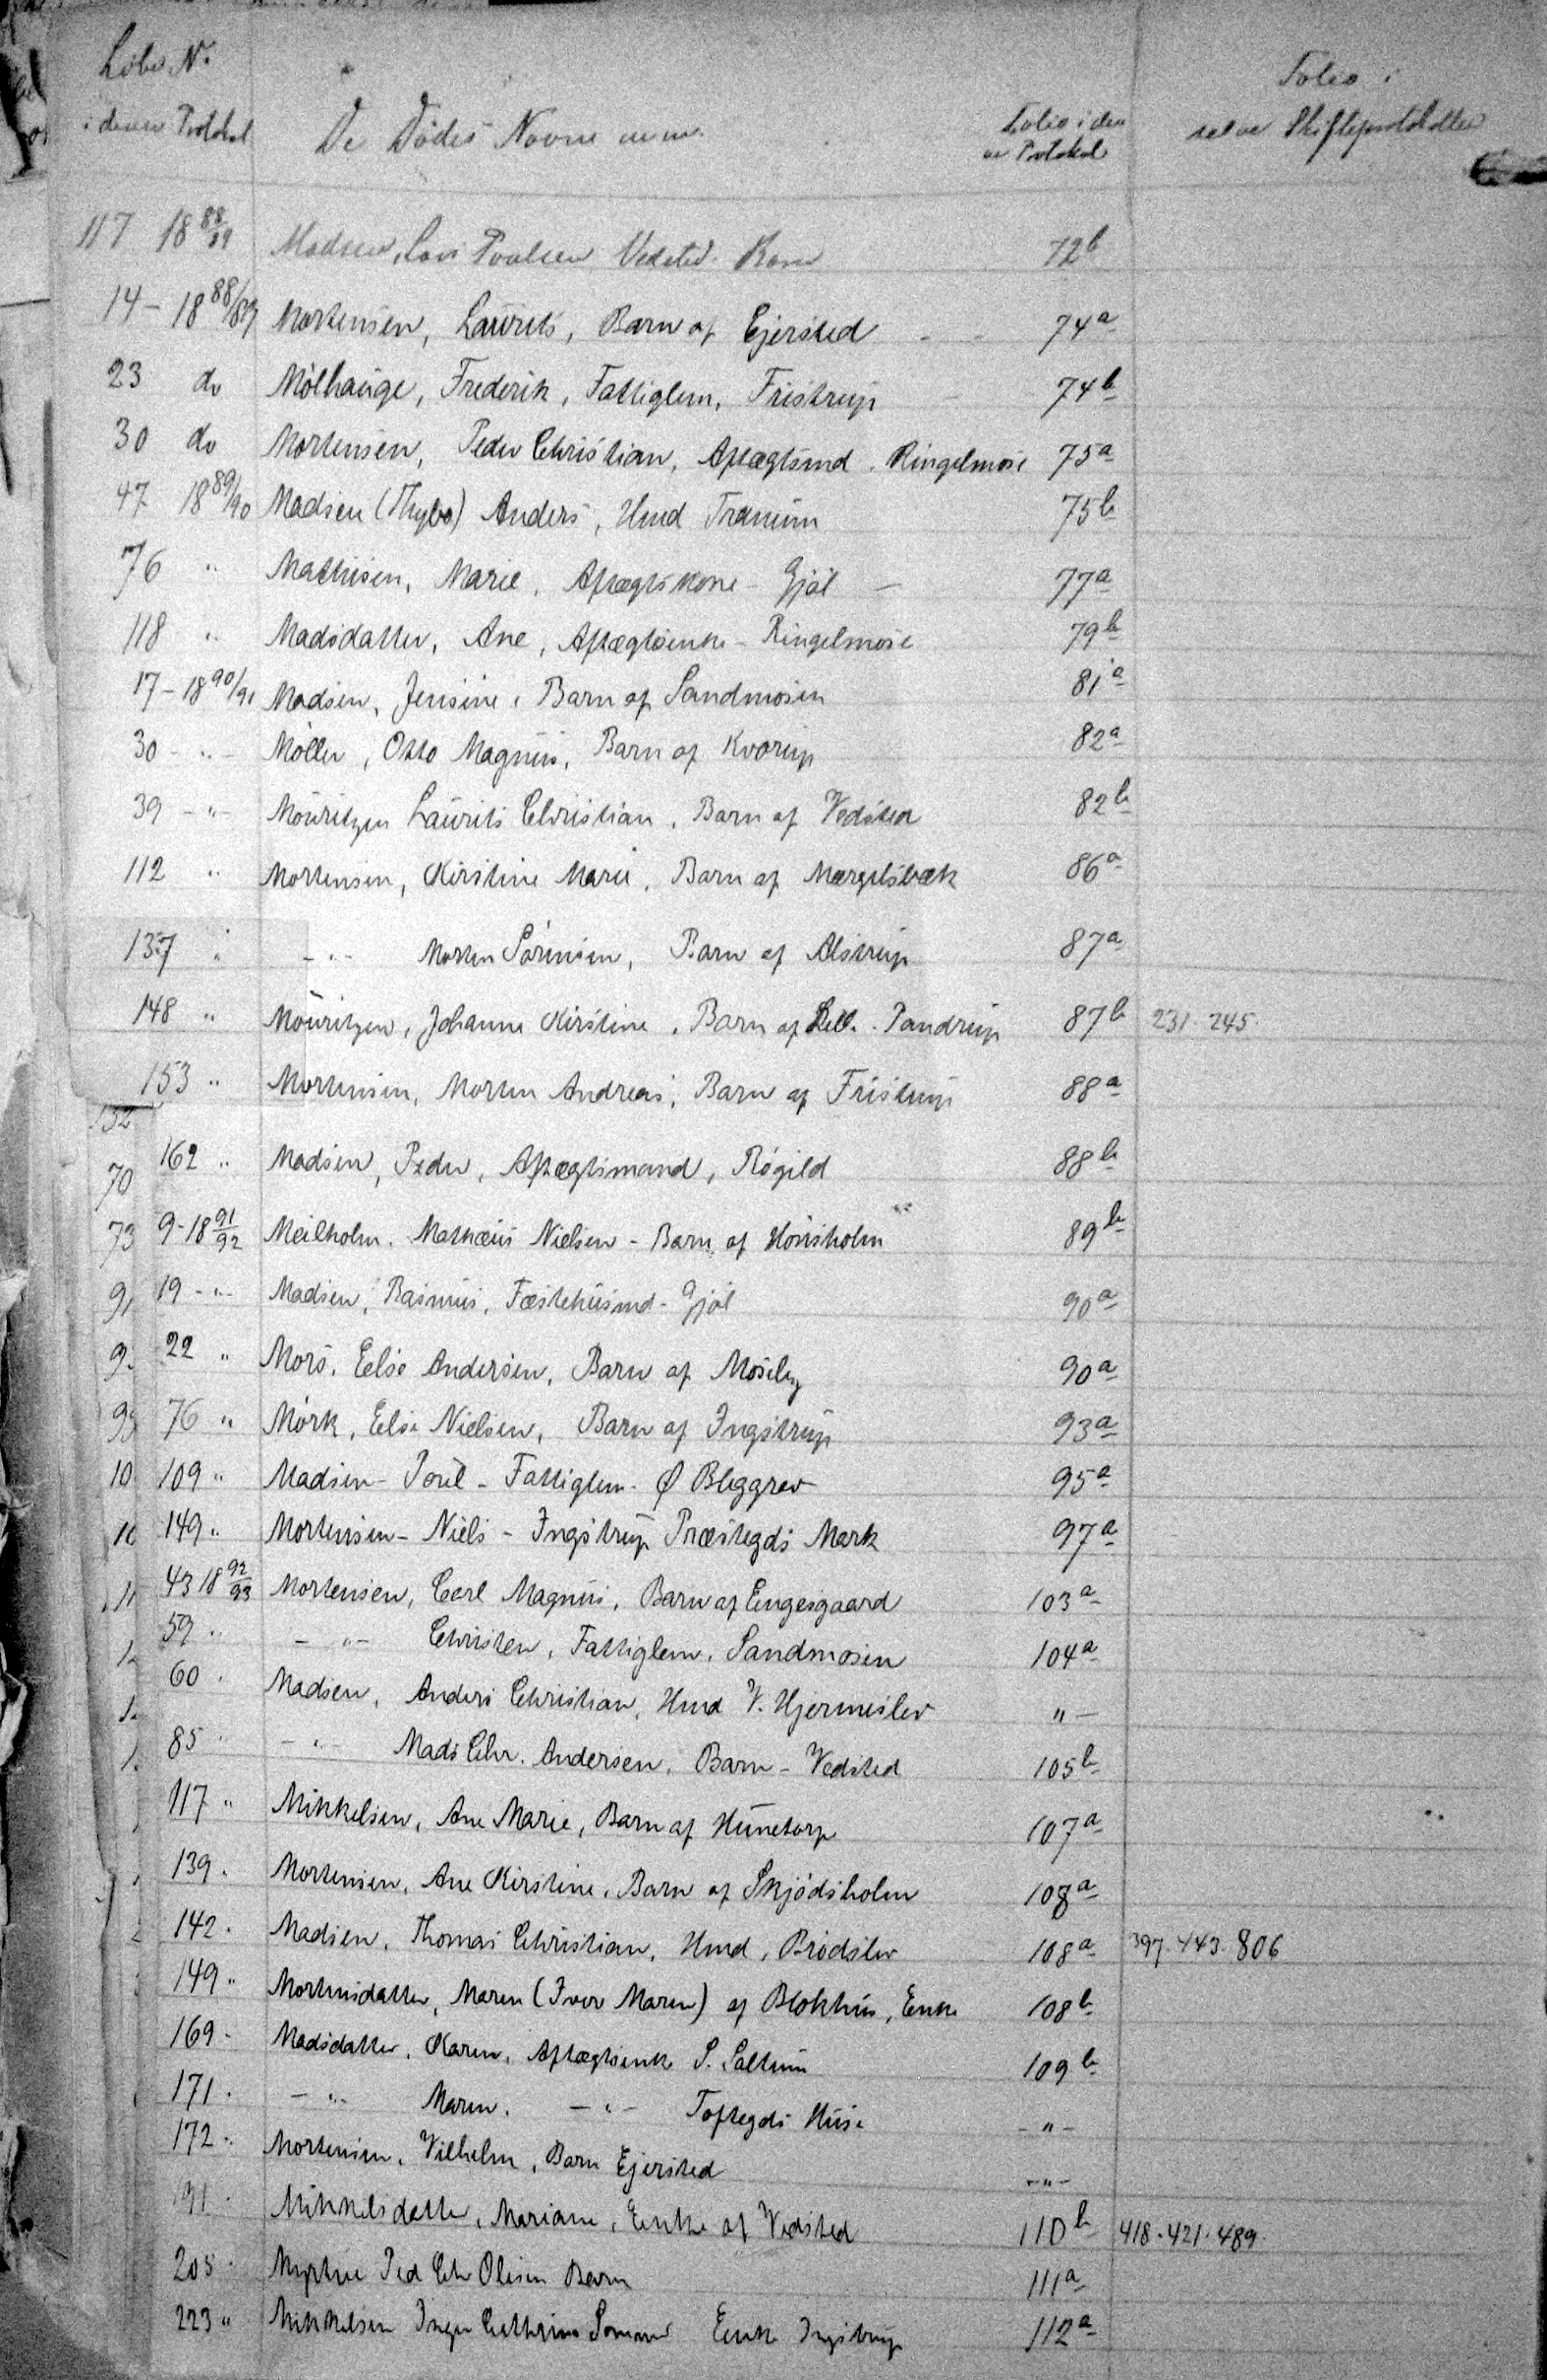 Löbe N.
i denne Protokol
De Dödes Navne m.m.
Folio i den
ne Protokol
Folio i
selve Skifteprotokollen
117 18 88/89 Madsen, Lars Poulsen Vedsted. Barn 72 b
14 - 18 88/89 Mortensen, Laurits, Barn af Ejersted - - 74 a
23 do Mölhauge, Frederik, Fattiglem, Fristrup 74 b
30 do Mortensen, Peder Christian, Aftægtsmd. Ringelmose 75 a
47 18 89/90 Madsen (Thybo) Anders, Hmd Tranum 75 b
76 " Mathisen, Marie, Aftægtskone - Gjöl - 77 a
118 " Madsdatter, Ane, Aftægtsenke - Ringelmose 79 b
17 - 18 90/91 Madsen, Jensine, Barn af Sandmosen 81 a
30 - " - Möller, Otto Magnus, Barn af Kvorup 82 a
39 - " - Mouritzen Laurits Christian, Barn af Vedsted 82 b
112 " Mortensen, Kirstine Marie, Barn af Mærgelsbæk 86 a
137 " - " - Morten Sörensen, Barn af Alstrup 87 a
148 " Mouritzen, Johanne Kirstine, Barn af Lill. Pandrup 87 b 231. 245.
153 " Mortensen, Morten Andreas, Barn af Fristrup 88 a
132
162 " Madsen, Peder, Aftægtsmand, Rögild 88 b
70
73 9 - 18 91/92 Meilholm. Mathæus Nielsen - Barn af Housholm 89 b
91 19 - " - Madsen, Rasmus, Fæstehusmd - Gjöl 90 a
9 22 " Mors, Else Andersen, Barn af Moseby 90 a
99 76 " Mörk, Else Nielsen, Barn af Ingstrup 93 a
10 109 " Madsen - Poul - Fattiglem - Ø Bleggrav 95 a
10 149 " Mortensen - Niels - Ingstrup Præstegds Mark 97 a
11 43 18 92/93 Mortensen, Carl Magnus, Barn af Engesgaard 103 a
59 " - " - Christen, Fattiglem, Sandmosen 104 a
60 " Madsen, Anders Christian, Hmd V. Hjermislev " -
85 " - " - Mads Chr. Andersen, Barn - Vedsted 105 b
117 " Mikkelsen, Ane Marie, Barn af Hunetorp 107 a
139 " Mortensen, Ane Kirstine, Barn af Skjödsholm 108 a
142 " Madsen, Thomas Christian, Hmd, Brödslev 108 a 397. 443. 806
149 " Mortensdatter, Maren (Iver Maren) af Blokhus, Enke 108 b
169 - Madsdatter, Karen, Aftægtsenke S. Saltum 109 b
171 " - " - Maren. - " - Toftegds Huse - " -
172 " Mortensen, Vilhelm, Barn Ejersted - " -
191 " Mikkelsdatter, Mariane, Enke af Vedsted 110 b 418. 421. 489.
205 " Ped Chr Olesen Barn 111 a
223 " Mikkelsen Inger Cathrine Enke Ingstrup 112 a